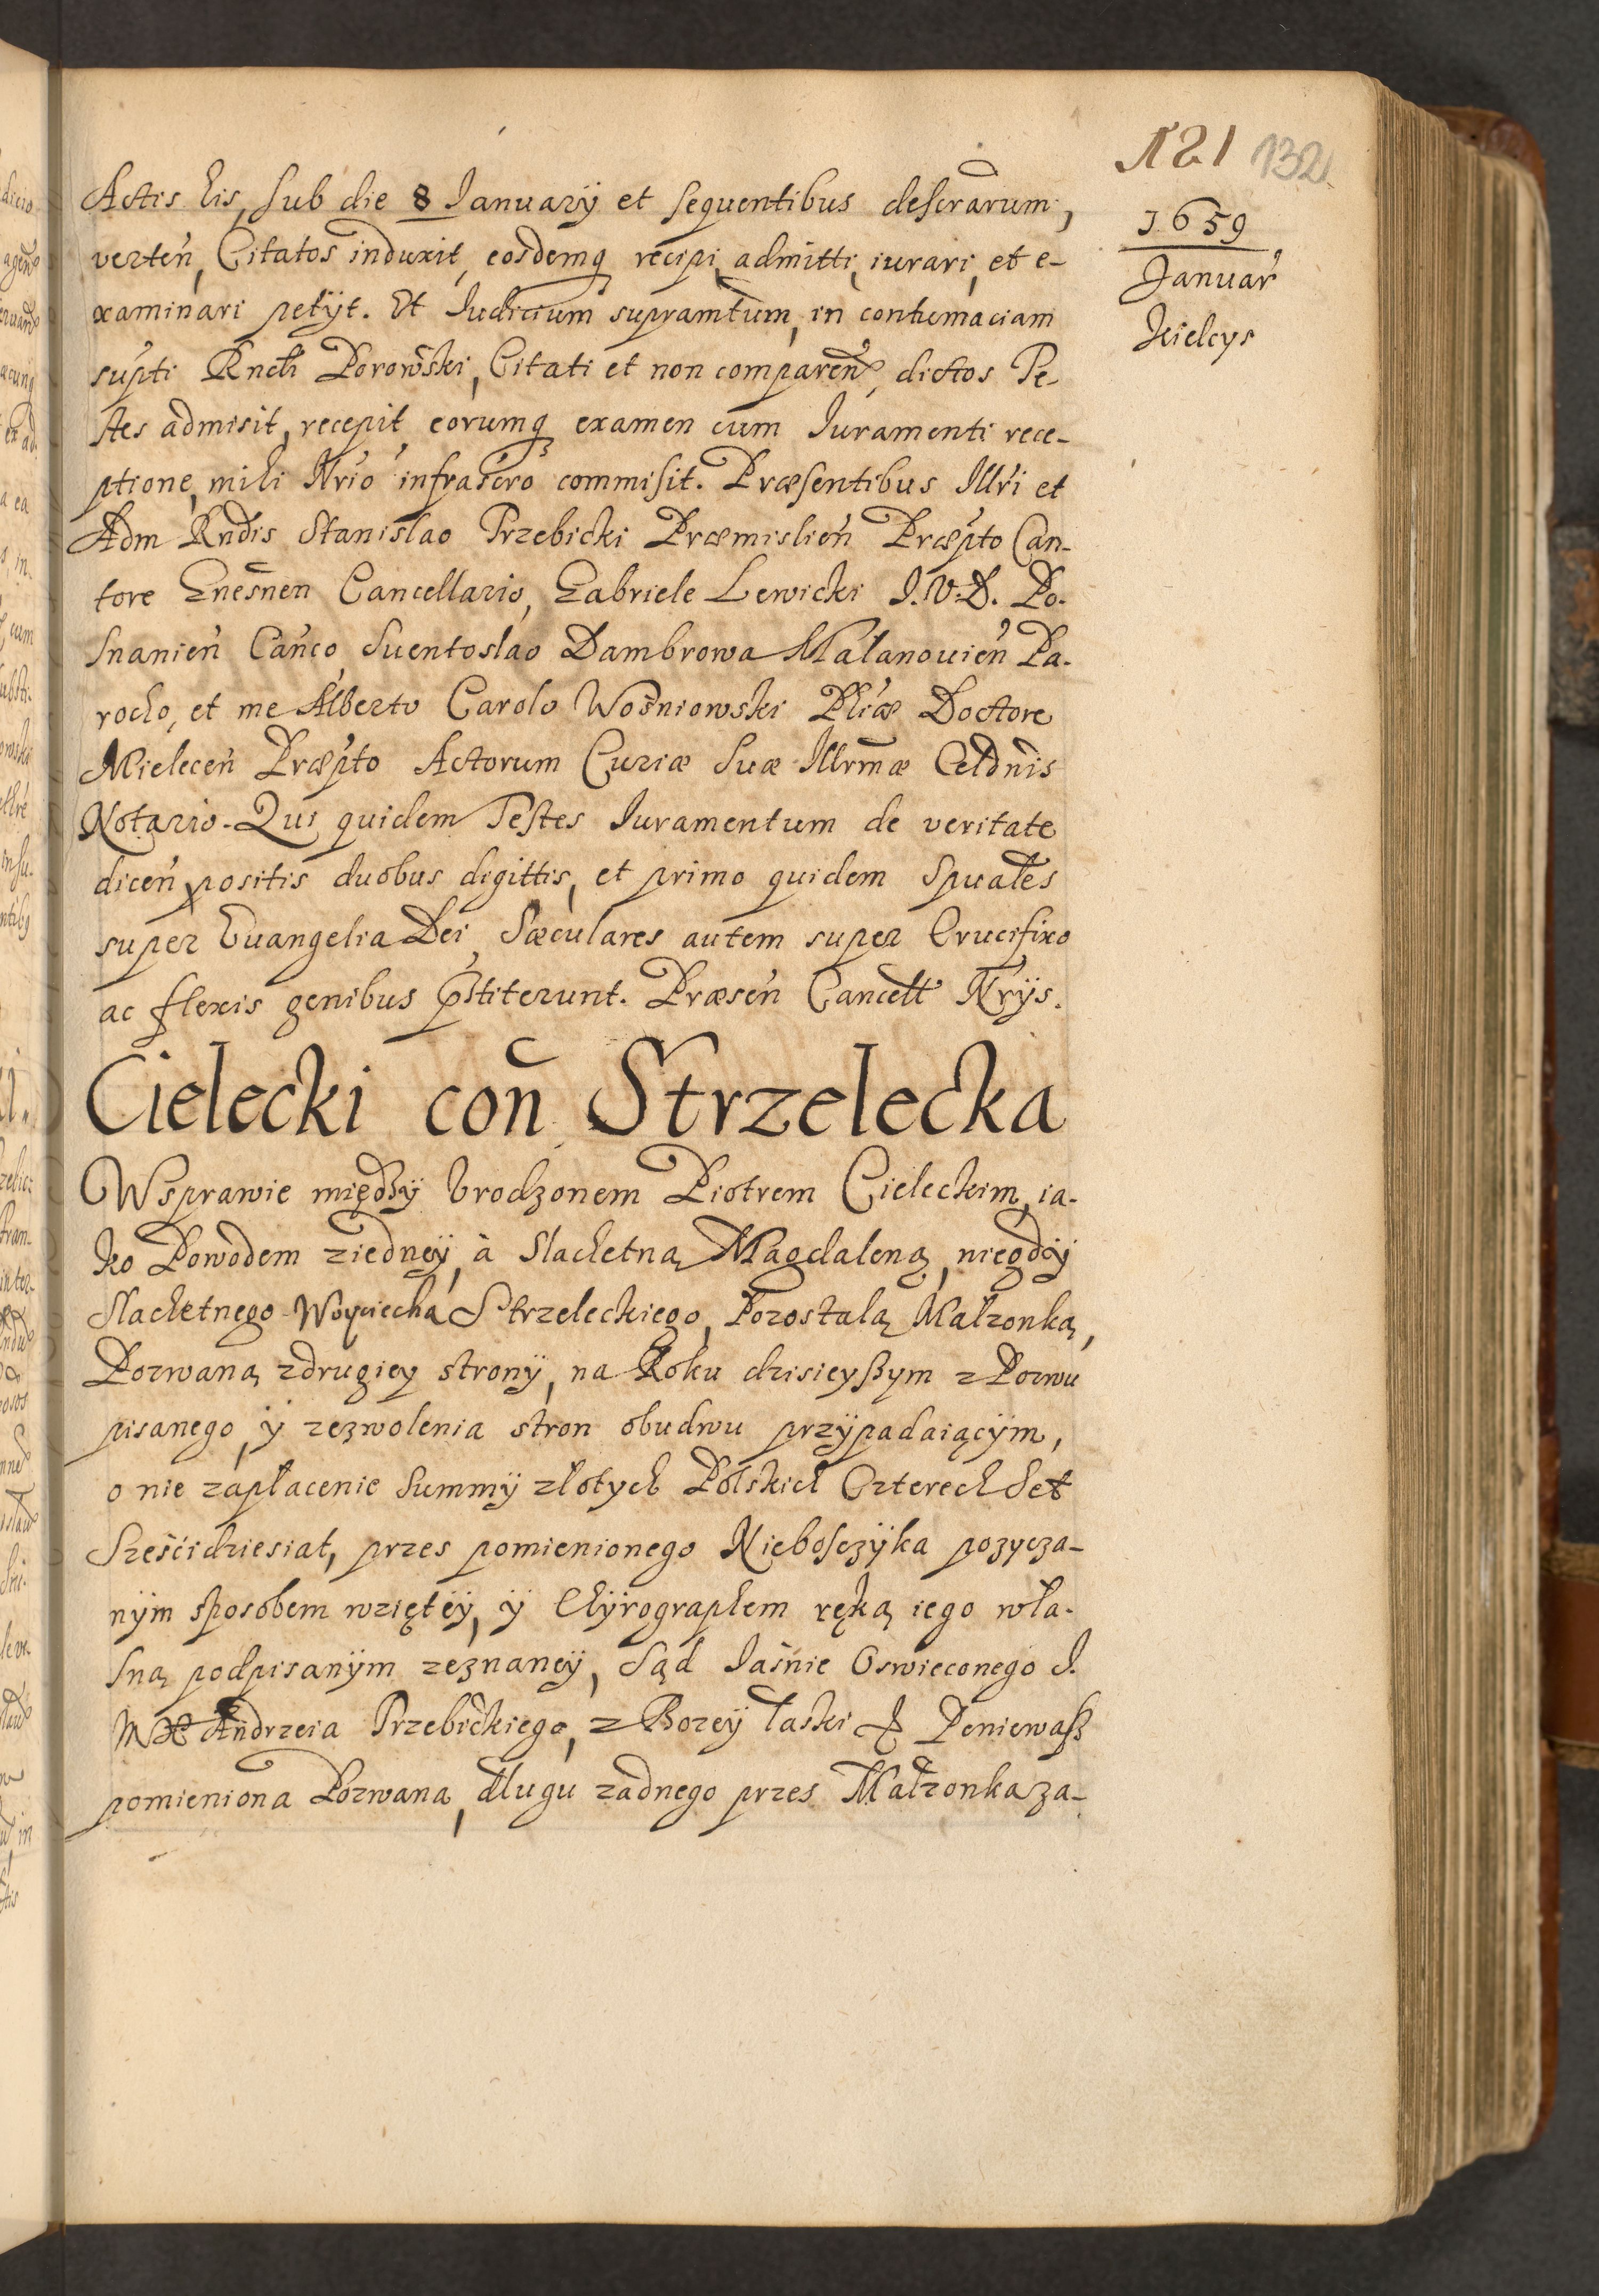 121 132
1659
Januar
Kielcys
Actis his, sub die 8 January et sequentibus descrarum,
verten, Citatos induxit, eosdemq recipi, admitti, iurari, et e-
xaminari petyt. Et Iudicium supramtum, in contumaciam
supti Rndi Porowski, Citati et non comparen, dictos Te-
stes admisit, recepit, eorumq examen cum Iuramenti rece-
ptione, mihi Nrio infrascro commisit. Præsentibus Illri et
Adm Rndis Stanislao Trzebicki Præmislien Præpto Can-
tore Gnesnen Cancellario, Gabriele Lewicki I.V.D. Po-
snanien Canco, Suentoslao Dambrowa Malanouien Pa-
rocho, et me Alberto Carolo Wosniowski Phiæ Doctore
Mielecen Præpto Actorum Curiæ Suæ Illrmæ Celdnis
Notario. Qui quidem Testes Iuramentum de veritate
dicen, positis duobus digittis, et primo quidem Spuales
super Euangelia Dei, Sæculares autem super Crucifixo
ac flexis genibus pstiterunt. Præsen Cancell Nrys.
Cielecki con Strzelecka
Wsprawie między Urodzonem Piotrem Cieleckim, ia-
ko Powodem ziedney, à Slachetną Magdaleną, niegdy
Slachetnego Woyciecha Strzeleckiego, Pozostalą Małzonką,
Pozwaną zdrugiey strony, na Roku dzisieyßym z Pozwu
pisanego, y zezwolenia stron obudwu przypadaiącym,
o nie zapłacenie Summy złotych Polskich Czterech Set
Sześcidziesiat, przes pomienionego Niebosczyka pozycza-
nym sposobem wziętey, y Chyrographem ręką iego wła-
sną podpisanym zeznaney, Sąd Iaśnie Oswieconego I.
MX Andrzeia Trzebickiego, z Bozey łaski & Peniewaß
pomieniona Pozwana, długu zadnego przes Małzonka za-